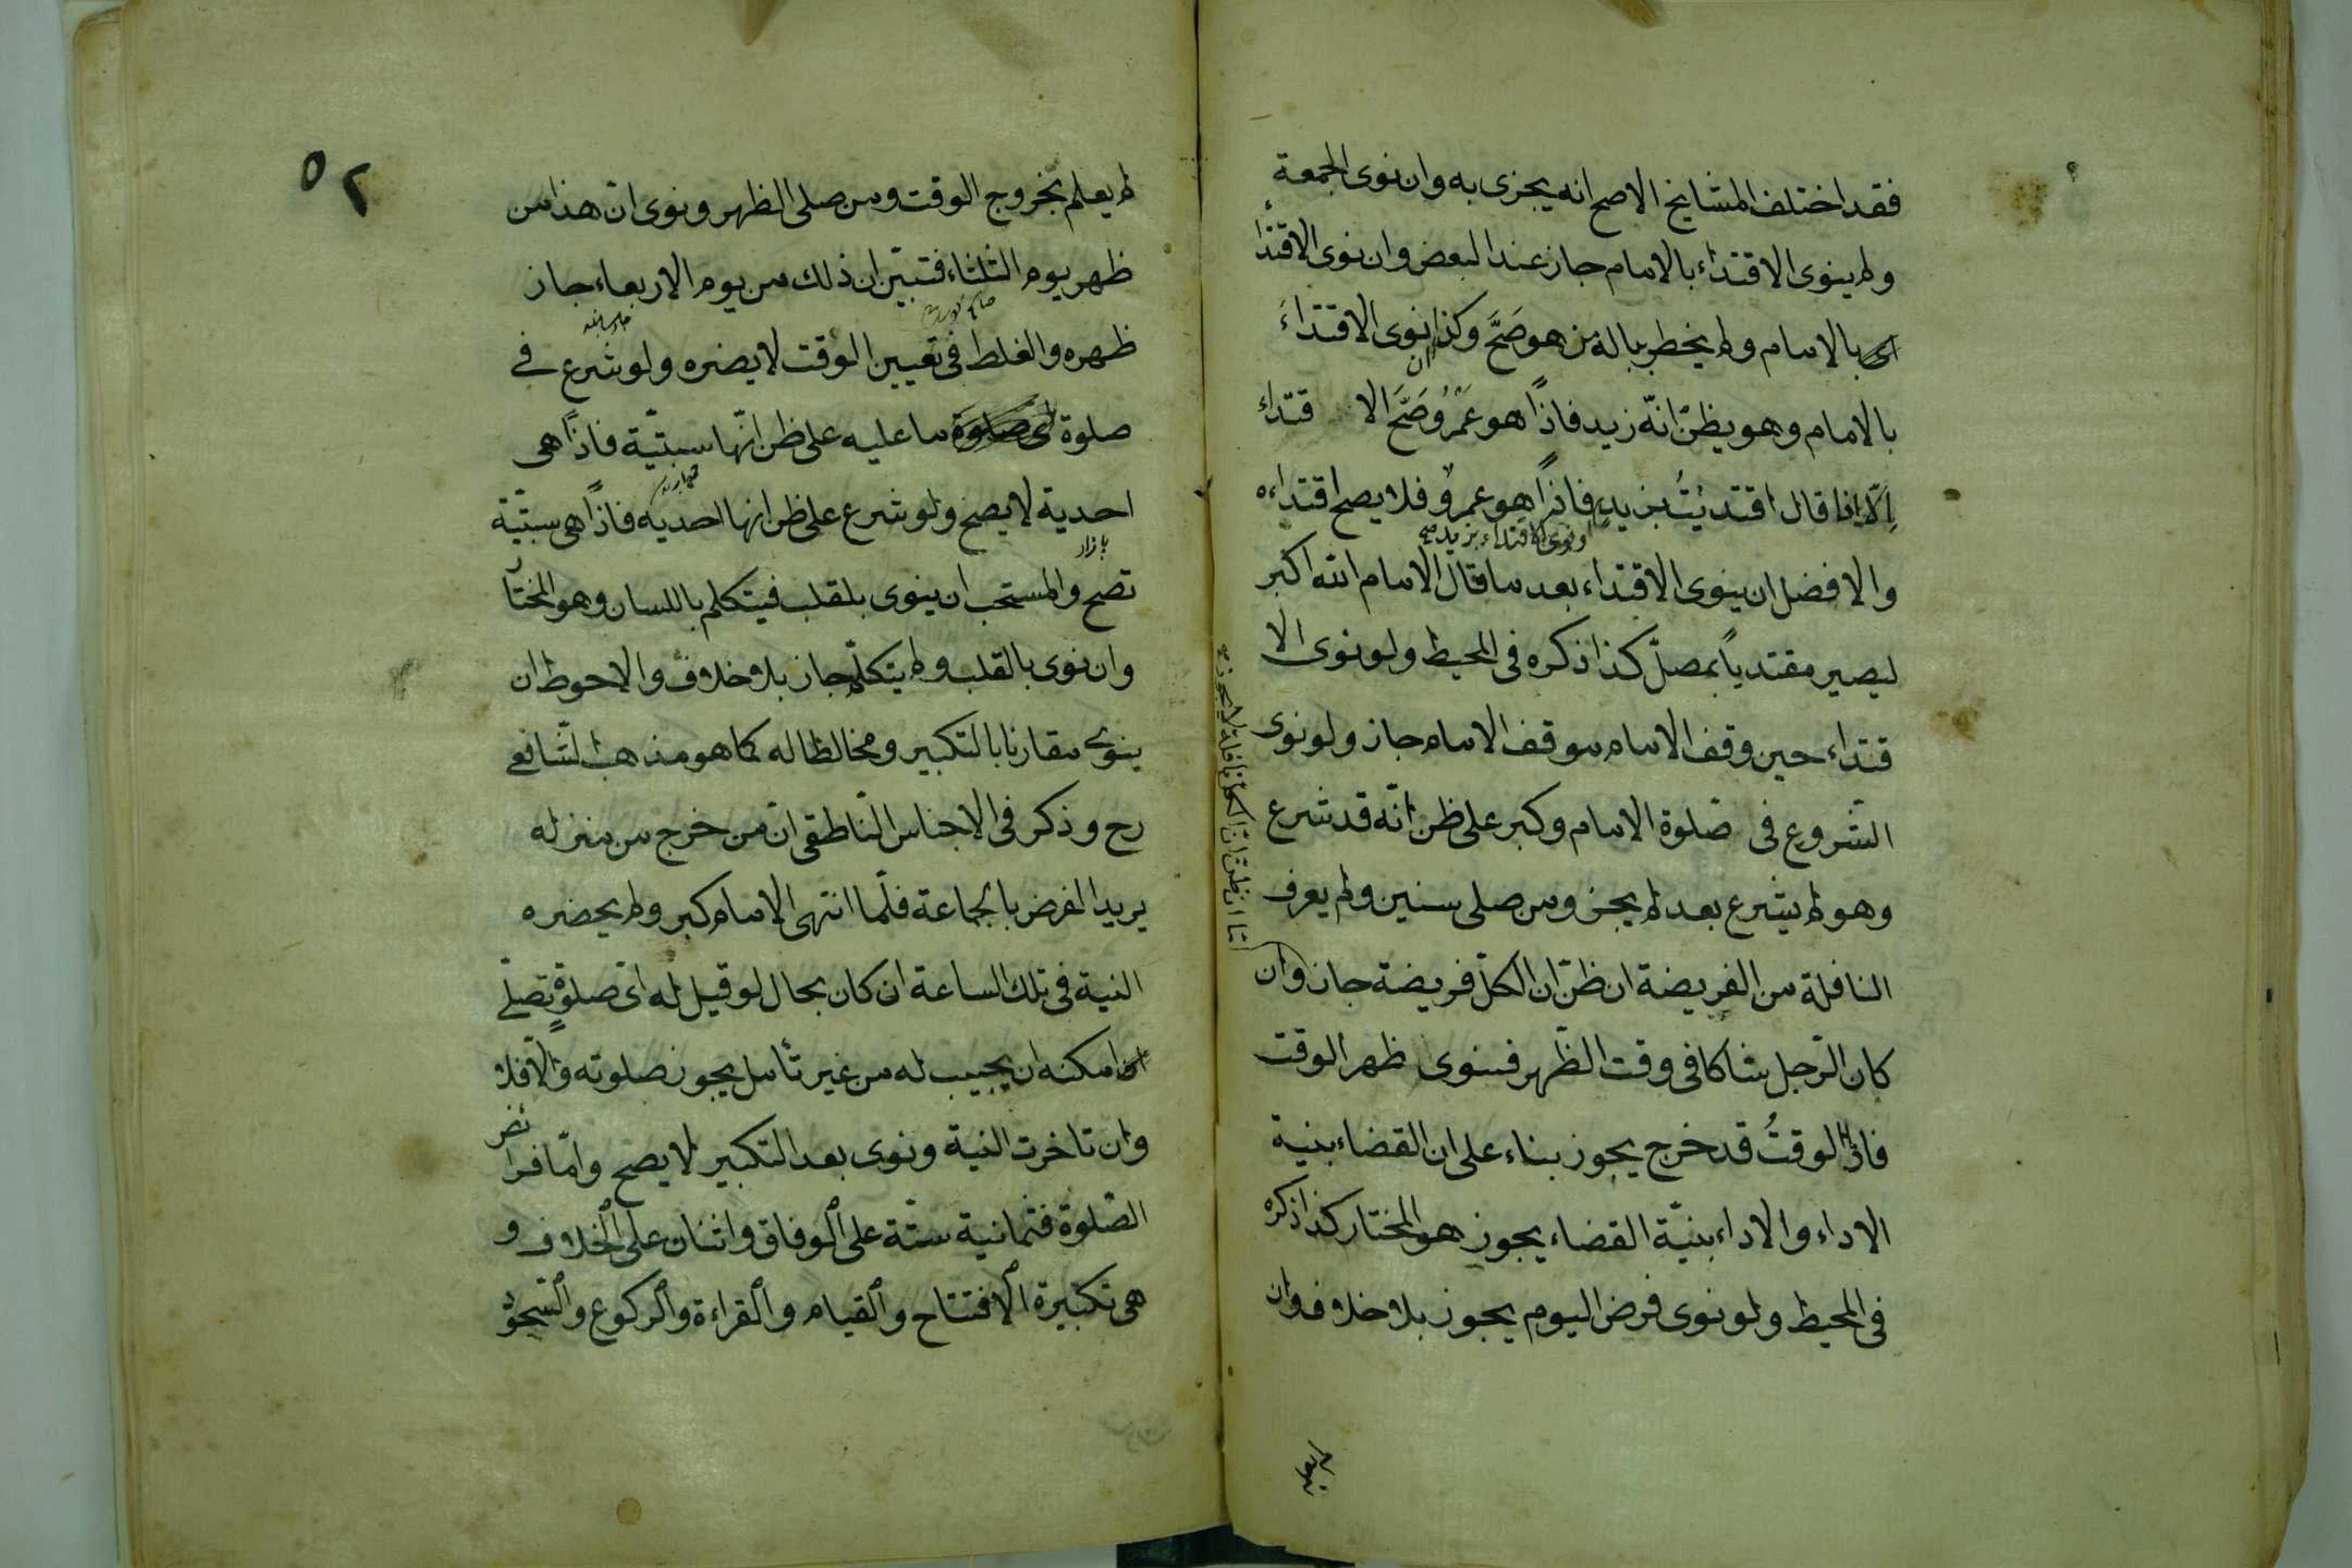 فقد اختلف المشايخ الاصح انه يجزى به وان نوى الجمعة
ولم ينوى الاقتداء بالامام جاز عند البعض وان نوى الاقتداء
بالامام ولم يخطر بباله من هو صَحَّ وكذا ان نوى الاقتداءَ
بالامام وهو يظنّ انّه زيد فاذاً هو عَمْرُو صَحَّ الا قتداء
اِلّا اذا قال اقتديْتُ بزيدٍ فاذاً هو عمرٌو فلا يصح اقتداءه
او نوى الاقتداء بزيد صح
والافضل ان ينوى الاقتداء بعد ما قال الامام الله اكبر
ليصير مقتدياً بمصلّ كذا ذكره فى المحيط ولو نوى الا
قتداء حين وقف الامام موقف الامام جاز ولو نوى
الشّروع فى صلوة الامام وكبر على ظن انّه قد شرع
وهو لم يشرع بعد لم يجز ومن صلى سنين ولم يعرف
النافلة من الفريضة ان ظنّ ان الكلّ فريضة جاز وان
اما ان ظنّ ان الكل نافلة لا يجوز صح
كان الرّجل شاكا فى وقت الظّهر فنوى ظهر الوقت
فاذا الوقتُ قد خرج يجوز بناء على ان القضاء بنية
الاداء والاداء بنيّة القضاء يجوز هو المختار كذا ذكره
فى المحيط ولو نوى فرض اليوم يجوز بلا خلاف وان
لم يعلم
٥٢
لم يعلم بخروج الوقت ومن صلى الظهر ونوى انّ هذا من
ظهر يوم الثلثاء فتبيّن ان ذلك من يوم الاربعاء جاز
ظهره والغلط فى تعيين الوقت لا يضره ولو شرع فى
صلوة ما عليه على ظن انّها سبتيّة فاذاً هى
احدية لا يصح ولو شرع على ظن انها احديه فاذاً هى سبتيّة
بازار
تصح والمستحب ان ينوى بلقلب فيتكلم باللسان وهو المختار
وان نوى بالقلب ولم يتكلّم جاز بلا خلاف والاحوط ان
ينوى مقارنا بالتكبير ومخالطا له كما هو مذهب الشّافعى
رح وذكر فى الاجناس النّاطقى انّ من خرج من منزله
يريد الفرض بالجماعة فلّما انتهى الامام كبر ولم يحضره
النية فى تلك الساعة ان كان بحال لو قيل له اىّ صلوةٍ تصلّى
امكنه ان يجيب له من غير تأمل يجوز صلوته والّا فلا
وان تاخرت النية ونوى بعد التكبير لا يصح وامّا فرائض
الصّلوة فثمانية ستّة على الوفاق واثنان على الخلاف و
هى تكبيرة الافتتاح والقيام والقراءة والركوع والسّجود